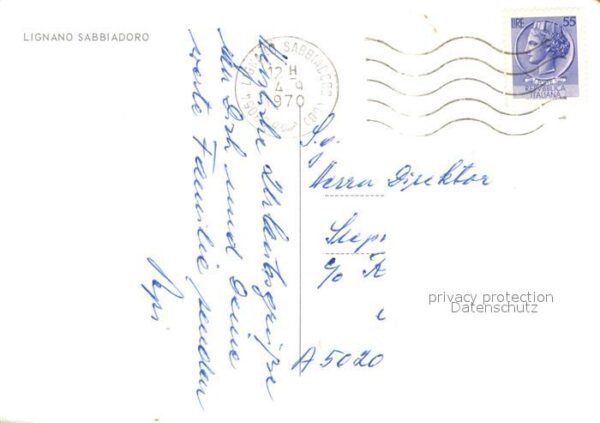 LIGNANO SABBIADORO
LIRE 55
REPUBBLICA
ITALIANA
LIGNANO SABBIADORO
12 H
4 9
1970
Herzliche Urlaubsgrüße
an Dich und Deine
werte Familie senden
Pepi
S.g.
Herrn Direktor
Sepp
c/o K
A 5020
privacy protection
Datenschutz